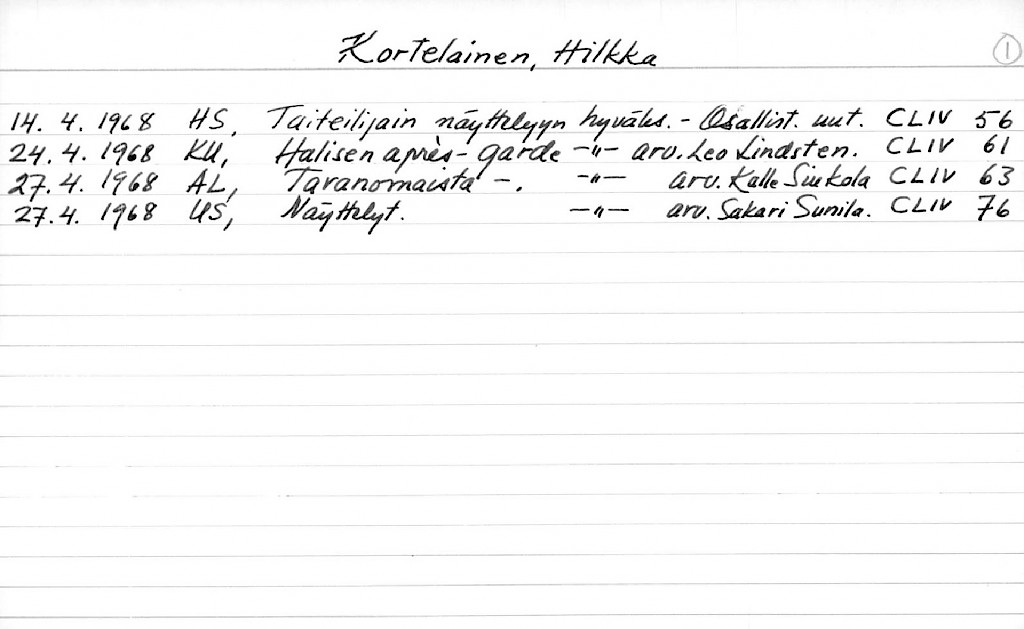 Kortelainen, Hilkka 1
14. 4. 1968 HS, Taiteilijain näyttelyyn hyväks. - Osallist. uut. CLIV 56
24. 4. 1968 KU, Halisen après-garde -"- arv. Leo Lindsten. CLIV 61
27. 4. 1968 AL, Tavanomaista -. -"- arv. Kalle CLIV 63
27. 4. 1968 US, Näyttelyt. -"- arv. Sakari Sunila. CLIV 76